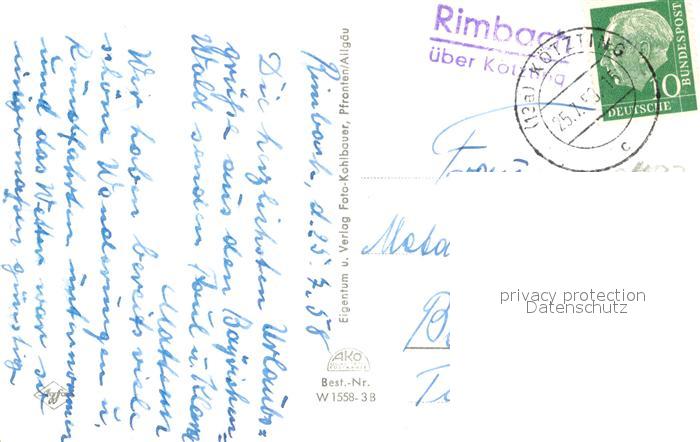 Rimbach
über Kötzting
(13a) KÖTZTING
25.7.58
c
10
DEUTSCHE
BUNDESPOST
Rimbach, d. 25.7.58
Die herzlichsten Urlaubs=
grüße aus dem Bayrischen=
Wald senden Paul u. Klara
Wir haben bereits viele
schöne Wanderungen u.
Rundfahrten unternommen
und das Wetter war so
einigermaßen günstig
Eigentum u. Verlag Foto-Kohlbauer, Pfronten/Allgäu
AKO
Best.-Nr.
W 1558-3B
Agfa
Frau
Meta
privacy protection
Datenschutz